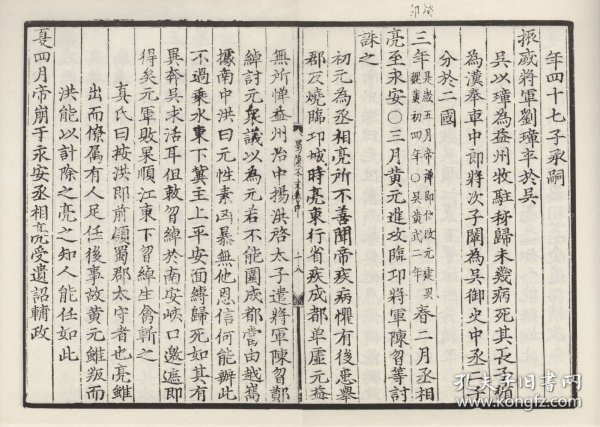 年四十七子丞嗣
振威將軍劉璋卒於吳
吳以璋為益州牧駐秭歸未幾病死其長子循
為漢奉車中郎將次子闡為吳御史中丞
分於二國
三年是歲五月帝禪即位改元建興
魏黃初四年○吳黃武二年春二月丞相
亮至永安○三月黃元進攻臨邛將軍陳曶等討
誅之
初元為丞相亮所不善聞帝疾病懼有後患舉
郡反燒臨邛城時亮東行省疾成都單虛元益
蜀漢本末卷中
十八
無所憚益州治中揚洪啓太子遣將軍陳曶鄭
綽討元衆議以為元若不能圍成都當由越嶲
據南中洪曰元性素凶暴無他恩信何能辦此
不過乘水東下冀主上平安面縛歸死如其有
異奔吳求活耳但敕曶綽於南安峽口邀遮即
得矣元軍敗果順江東下曶綽生禽斬之
真氏曰按洪郡前領蜀郡太守者也亮雖
出而僚屬有人足任後事故黃元雖叛而
洪能以計除之亮之知人能任如此
夏四月帝崩于永安丞相亮受遺詔輔政
孔夫子旧书网
www.kongfz.com